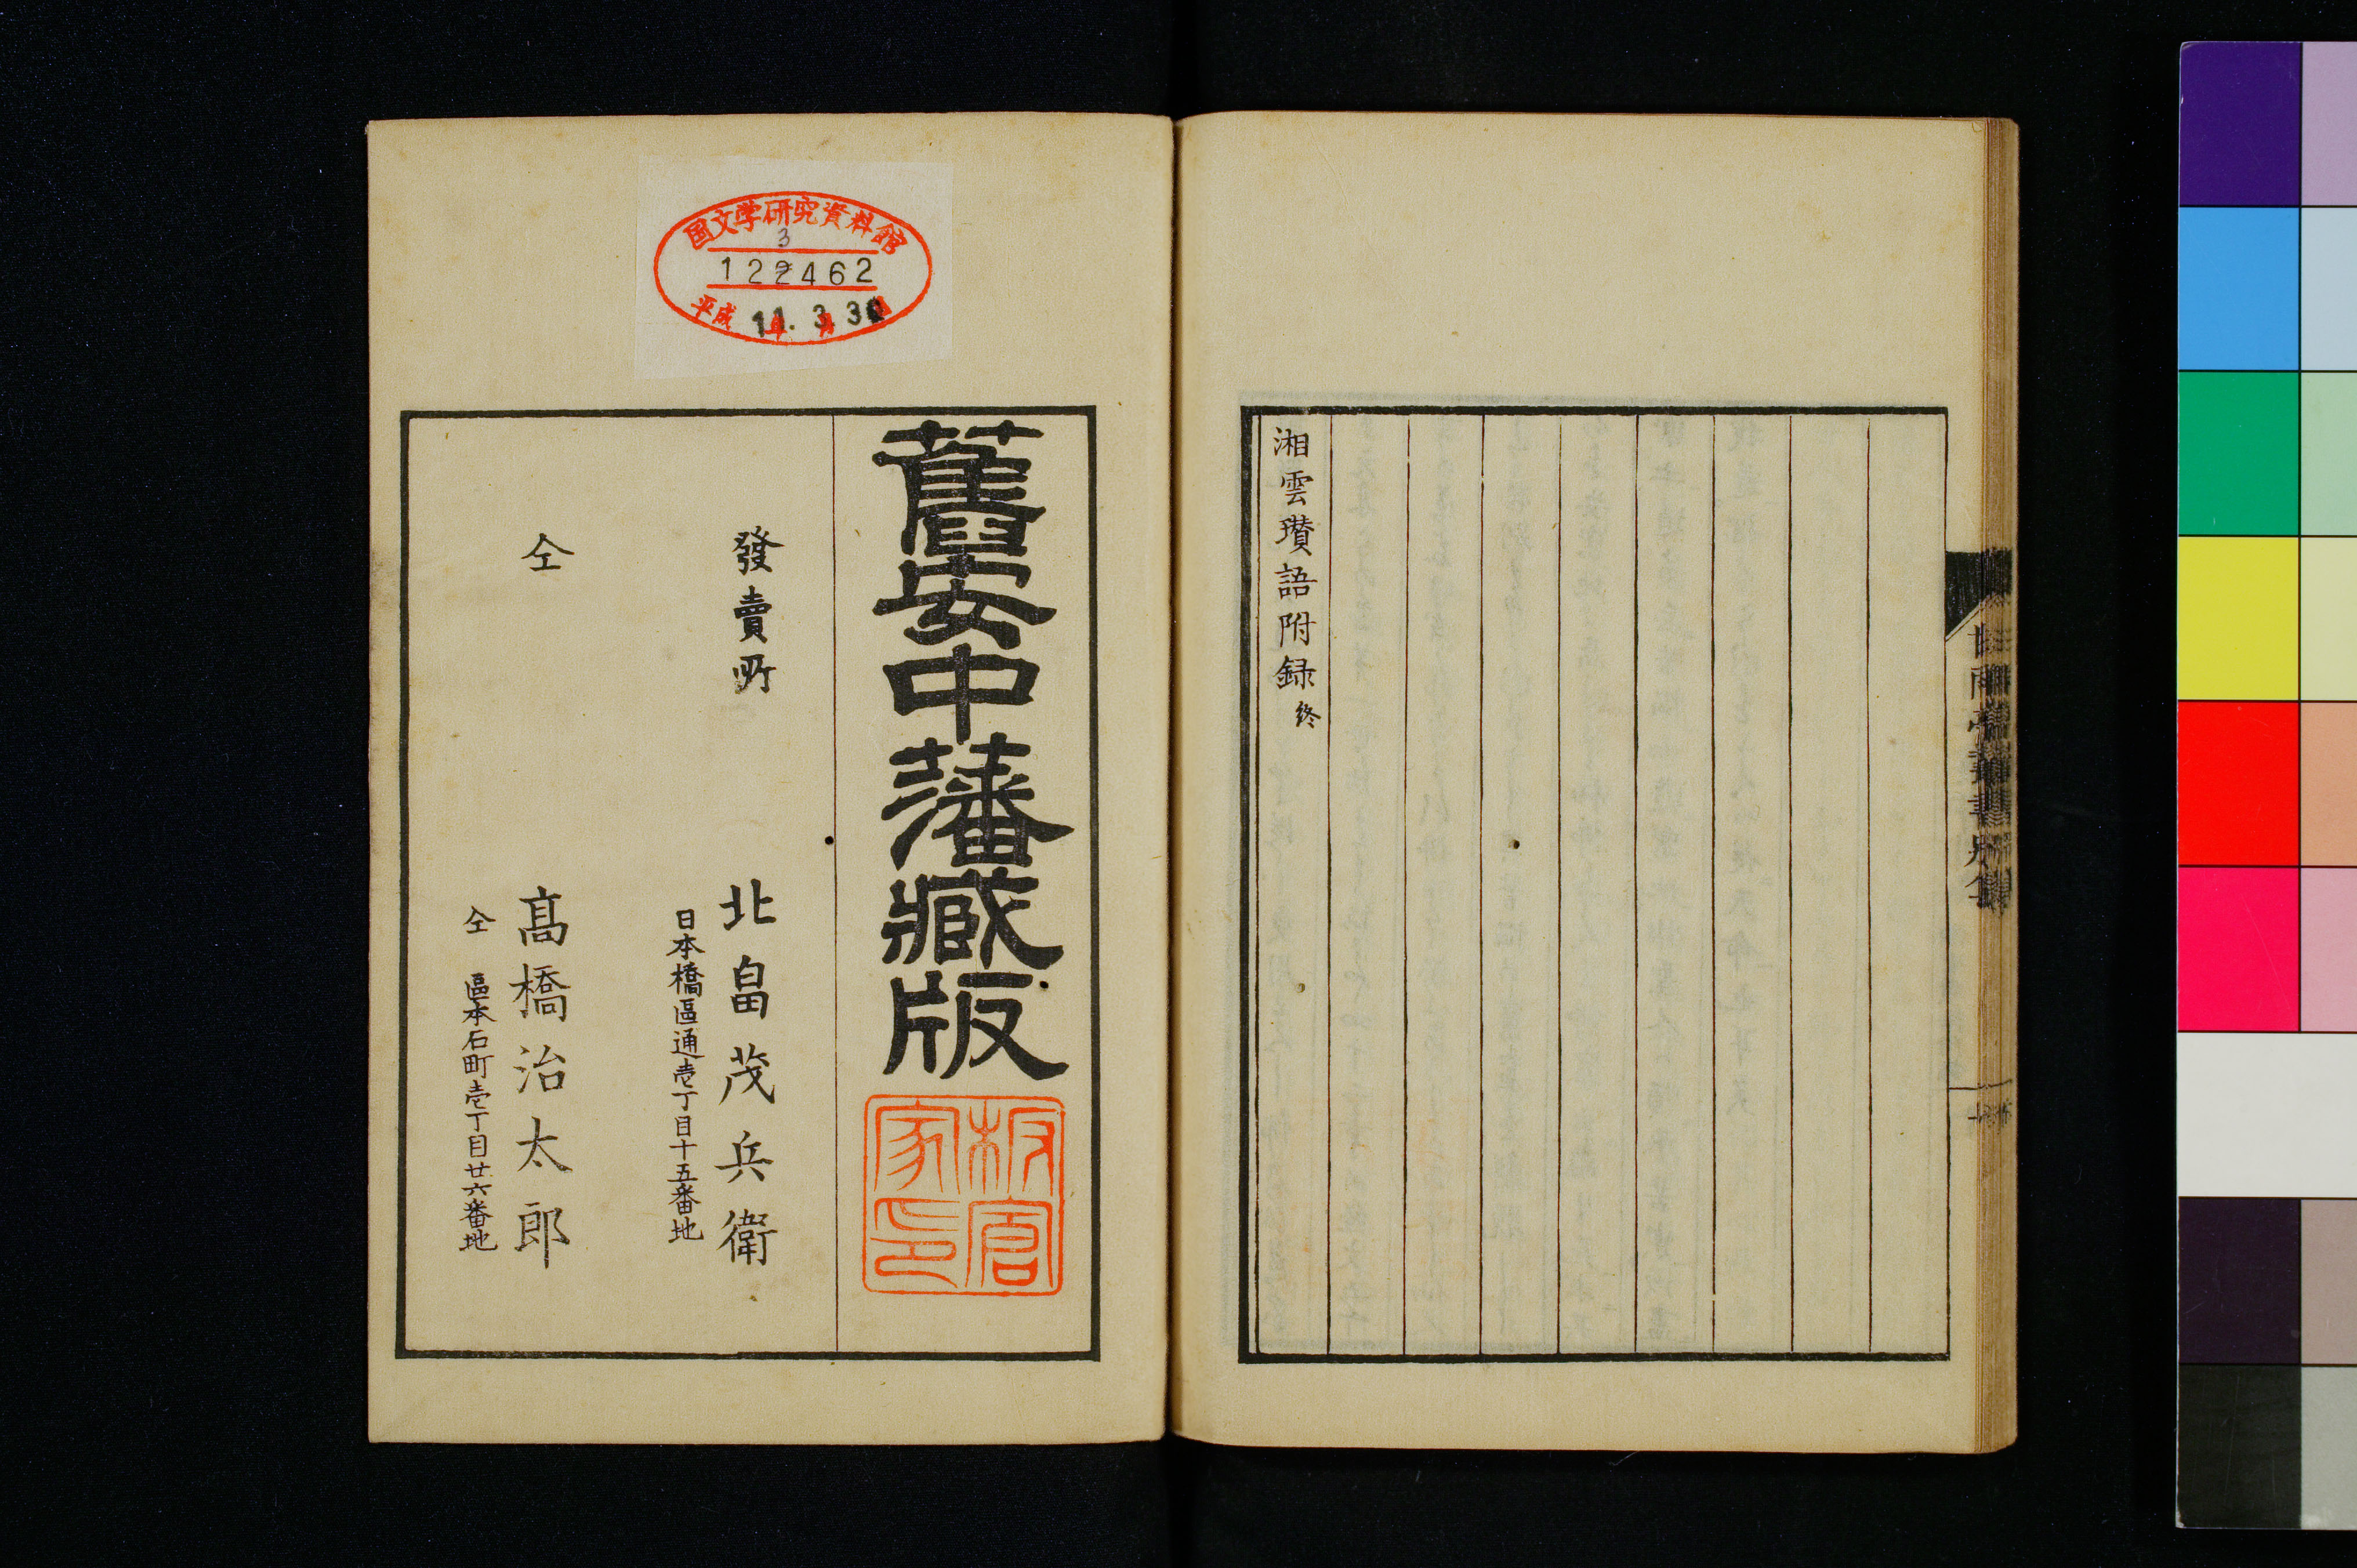 湘雲瓚語附録終
国文学研究資料館
3
122462
平成 11. 3. 30
舊安中藩藏版
板倉家印
發賣所
北畠茂兵衛
日本橋區通壱丁目十五番地
仝
髙橋治太郎
仝 區本石町壱丁目廿六番地